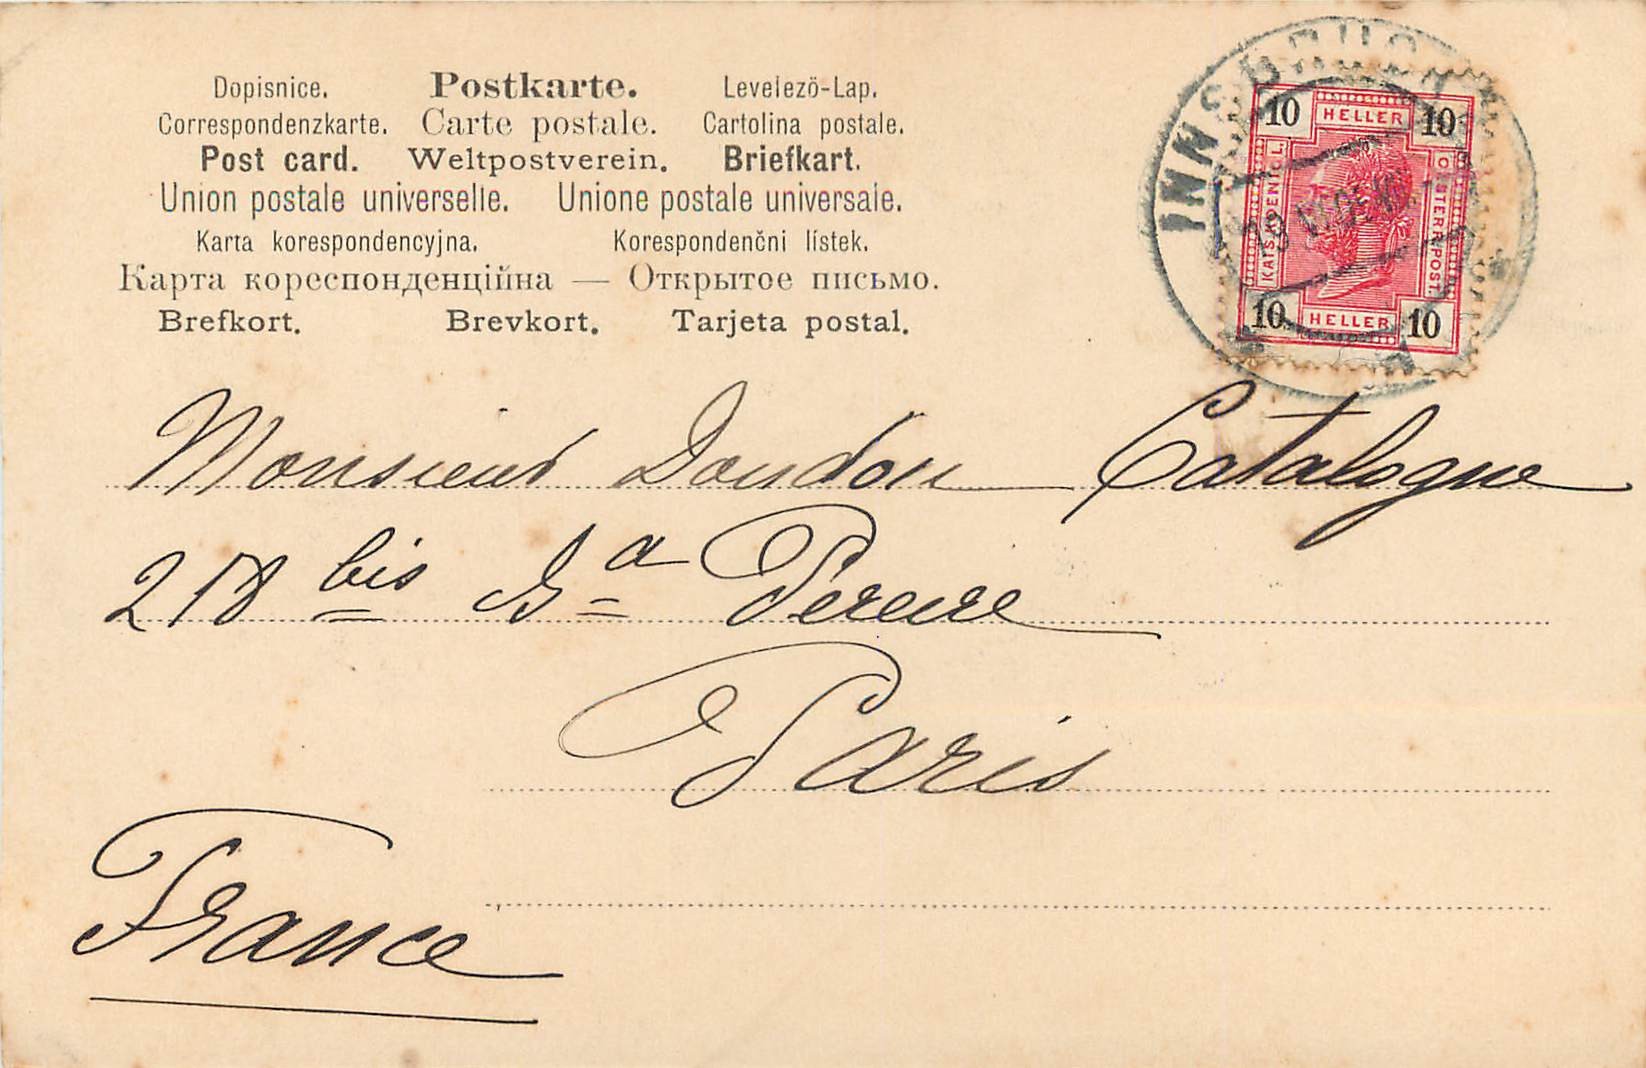 Dopisnice. Postkarte. Levelező-Lap.
Correspondenzkarte. Carte postale. Cartolina postale.
Post card. Weltpostverein. Briefkart.
Union postale universelle. Unione postale universale.
Karta korespondencyjna. Korespondenčni lístek.
Карта кореспонденційна — Открытое письмо.
Brefkort. Brevkort. Tarjeta postal.
INNSBRUCK
10 HELLER 10
KAISERL. KÖNIGL. OESTERR. POST.
10 HELLER 10
Monsieur Doudou Catalogue
218 bis Bd Pereire
Paris
France